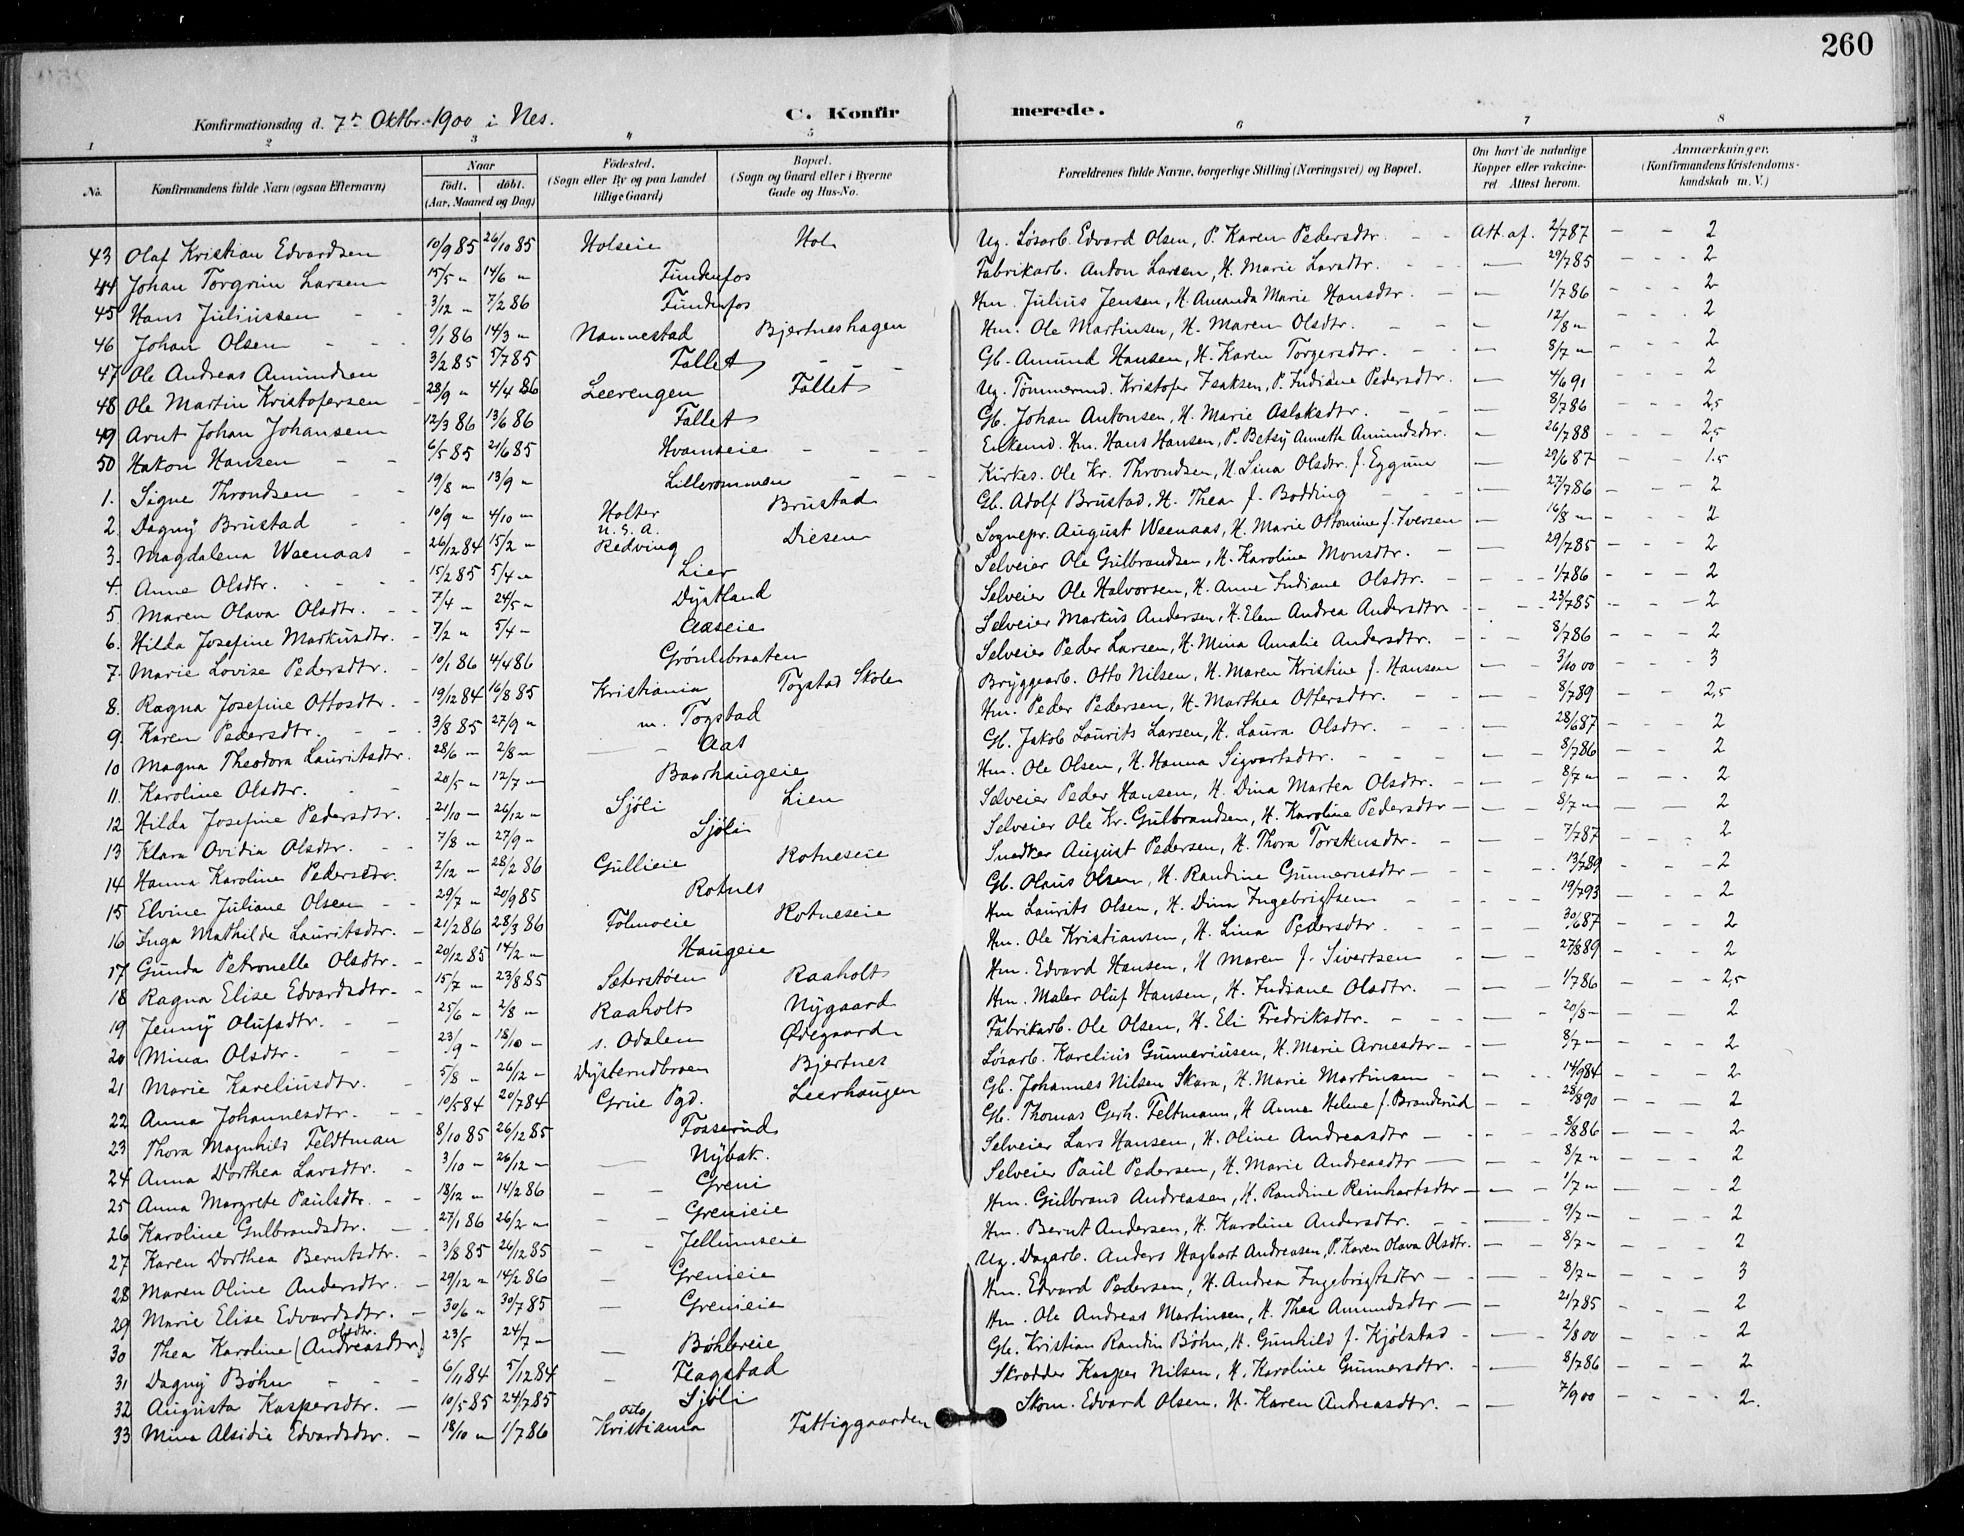 260
Konfirmationsdag d. 7de Oktbr. 1900 i Nes.
C. Konfirmerede.
1 2 3 4 5 6 7 8
No.
Konfirmandens fulde Navn (ogsaa Efternavn)
Naar
født. døbt.
(Aar, Maaned og Dag)
Födested.
(Sogn eller By og paa Landet
tillige Gaard)
Bopæl.
(Sogn og Gaard eller i Byerne
Gade og Hus-No.
Forældrenes fulde Navne, borgerlige Stilling (Næringsvei) og Bopæl.
Om havt de naturlige
Kopper eller vakcine-
ret. Attest herom.
Anmærkninger.
(Konfirmandens Kristendoms-
kundskab m. V.)
43 Olaf Kristian Edvardsen 10/9 85 26/10 85 Holseie Hol Ug. Løsarb. Edvard Olsen, P. Karen Pedersdtr. - - Att. af. 2/7 87 - - 2
44 Johan Torgrim Larsen 15/5 " 14/6 " Fundenfos Fabrikarb. Anton Larsen, H. Marie Larsdtr. - 29/7 85 - - 2
45 Hans Juliussen 3/12 " 7/2 86 Fundenfos Hm. Julius Jensen, H. Amanda Marie Hansdtr. - 1/7 86 - - 2
46 Johan Olsen 9/1 86 14/3 " Nannestad Bjertneshagen Hm. Ole Martinsen, H. Maren Olsdtr. - 12/8 " - - 2
47 Ole Andreas Amundsen 3/2 85 5/7 85 Fallet - - Gb. Amund Hansen, H. Karen Torgersdtr. - 8/7 " - - 2
48 Ole Martin Kristofersen 28/9 " 4/4 86 Leerengen Fallet Ug. Tømmermd. Kristofer Isaksen, P. Indiane Pedersdtr. - 4/6 91 - - 2
49 Arnt Johan Johansen 12/3 86 13/6 86 Fallet Gb. Johan Antonsen, H. Marie Aslaksdtr. - 8/7 86 - - 2,5
50 Hakon Hansen 6/5 85 21/6 85 Hvamseie - - Enkemd. Hm. Hans Hansen, P. Betsy Annette Amundsdtr. - 26/7 88 - - 2,5
1. Signe Throndsen 19/8 " 13/9 " Lillerommen - - Kirkes. Ole Kr. Throndsen, H. Lina Olsdtr. f. Eggum - 29/6 87 - - 1.5
2. Dagny Brustad 10/9 " 4/10 " Holter Brustad Gb. Adolf Brustad, H. Thea f. Bodding - 27/7 86 - - 2
3. Magdalena Weenaas 26/12 84 15/2 " U.S.A. Redving Diesen Sognepr. August Weenaas, H. Marie Ottomine f. Iversen - 16/8 " - - 2
4. Anne Olsdtr. 15/2 85 5/4 " Lier Selveier Ole Gulbrandsen, H. Karoline Monsdtr. - 29/7 85 - - 2
5 Maren Olava Olsdtr. 7/4 " 24/5 " Dystland Selveier Ole Halvorsen, H. Anne Indiane Olsdtr. - 1/7 86 - - 2
6. Hilda Josefine Markusdtr. 7/2 " 5/4 " Aaseie Selveier Markus Andersen, H. Elen Andrea Andersdtr - 23/7 85 - - 2
7. Marie Lovise Pedersdtr. 10/1 86 4/4 86 Grønlibraaten Selveier Peder Larsen, H. Mina Amalie Andersdtr. - 8/7 86 - - 2
8. Ragna Josefine Ottosdtr. 19/12 84 16/8 85 Kristiania Togstad Skole Bryggearb. Otto Nilsen, H. Maren Kristine f. Hansen - 3/10 00 - - 3
9. Karen Pedersdtr. 3/8 85 27/9 " m. Togstad Hm. Peder Pedersen, H. Marthea Ottersdtr. - 8/7 89 - - 2,5
10 Magna Theodora Lauritsdtr. 28/6 " 2/8 " Aas Gb. Jakob Laurits Larsen, H. Laura Olsdtr. - 28/6 87 - - 2
11. Karoline Olsdtr. 20/5 " 12/7 " Baarhaugeie Hm. Ole Olsen, H. Hanna Sigvartsdtr. - 8/7 86 - - 2
12 Hilda Josefine Pedersdtr. 21/10 " 26/12 " Sjøli Lien Selveier Peder Hansen, H. Dina Martea Olsdtr. - 8/7 " - - 2
13 Klara Ovidia Olsdtr. 7/8 " 27/9 " Sjøli Selveier Ole Kr. Gulbrandsen, H. Karoline Pedersdtr - 8/7 " - - 2
14 Hanna Karoline Pedersdtr. 2/12 " 28/2 86 Gullieie Rotneseie Snedker August Pedersen, H. Thora Torsknsdtr. - 7/7 87 - - 2
15 Elvine Juliane Olsen 29/7 " 20/9 85 Rotnes Gb. Olaus Olsen, H. Randine Gunnerusdtr - 13/7 89 - - 2
16 Inga Mathilde Lauritsdtr. 21/2 86 28/3 86 Folmoeie Rotneseie Hm Laurits Olsen, H. Dina Ingebrigtsen - 19/7 93 - - 2
17 Gunda Petronelle Olsdtr. 20/12 85 14/2 " Haugeie Hm. Ole Kristiansen, H. Lina Pedersdtr - 30/6 87 - - 2
18 Ragna Elise Edvardsdtr. 15/7 " 23/8 85 Sæterstøen Raaholt Hm. Edvard Hansen, H Maren f. Sivertsen - 27/6 89 - - 2
19 Jenny Olufsdtr. 25/6 " 2/8 " Raaholt Nygaard Hm. Maler Oluf Hansen, H. Indiane Olsdtr. - 1/7 86 - - 2,5
20 Mina Olsdtr. 23/9 " 18/10 " s. Odalen Ødegaard Fabrikarb. Ole Olsen, H. Eli Fredriksdtr. - 20/8 " - 2
21 Marie Kareliusdtr. 5/8 " 26/12 " Dysterudbroen Bjertnes Løsarb. Karelius Gunneriusen, H. Marie Arnesdtr - 8/7 " - - 2
22 Anna Johannesdtr. 10/5 84 20/7 84 Grue Pgd. Leerhaugen Gb. Johannes Nilsen Skara, H. Marie Martinsen - 14/9 84 - - 2
23 Thora Magnhild Feldtman 8/10 85 26/12 85 Fosserud Gb. Thomas Gerh. Feltmann, H Anne Helene f. Branderud - 28/8 90 - - 2
24 Anna Dorthea Larsdtr. 3/10 " 26/12 " Nybak. Selveier Lars Hansen, H. Oline Andreasdtr - 8/8 86 - - 2
25 Anna Margrete Paulsdtr. 13/12 " 14/2 86 Greni Selveier Paul Pedersen, H. Marie Andreasdtr - 8/7 " - - 2
26 Karoline Gulbrandsdtr. 27/1 86 26/2 " Grenieie Hm. Gulbrand Andreasen, H. Randine Reinhartsdtr - 1/7 " - - 2
27 Karen Dorthea Berntsdtr. 3/8 85 26/12 85 Jellumseie Hm. Bernt Andersen, H. Karoline Andersdtr. - 9/7 " - - 2
28 Maren Oline Andersdtr. 29/12 " 14/2 86 Grenieie Ug. Dagarb. Anders Hagbart Andreasen, P. Karen Olava Olsdtr. - 8/7 " - - 2
29 Marie Elise Edvardsdtr. 30/6 " 30/7 85 Grenieie Hm. Edvard Pedersen, H. Andrea Ingebrigtsdtr - 8/7 " - - 3
30 Thea Karoline (Andreasdtr.) Olsdtr. 23/5 24/7 " Bøhlereie Hm. Ole Andreas Martinsen, H. Thea Amundsdtr - 21/7 85 - - 2
31 Dagny Bøhn 6/11 84 5/12 84 Flagstad Gb. Kristian Randin Bøhn, H. Gunhild f. Kjølstad - 2/8 00 - - 2
32 Augusta Kaspersdtr. 10/5 85 24/7 85 Sjøli Skrædder Kasper Nilsen, H. Karoline Gunnersdtr. - 8/7 86 - - 2
33 Mina Alsidie Edvardsdtr. 18/10 " 1/7 86 Oslo Kristiania Fattiggaarden Skom. Edvard Olsen, H. Karen Andreasdtr. - 7/9 00 - - 2.